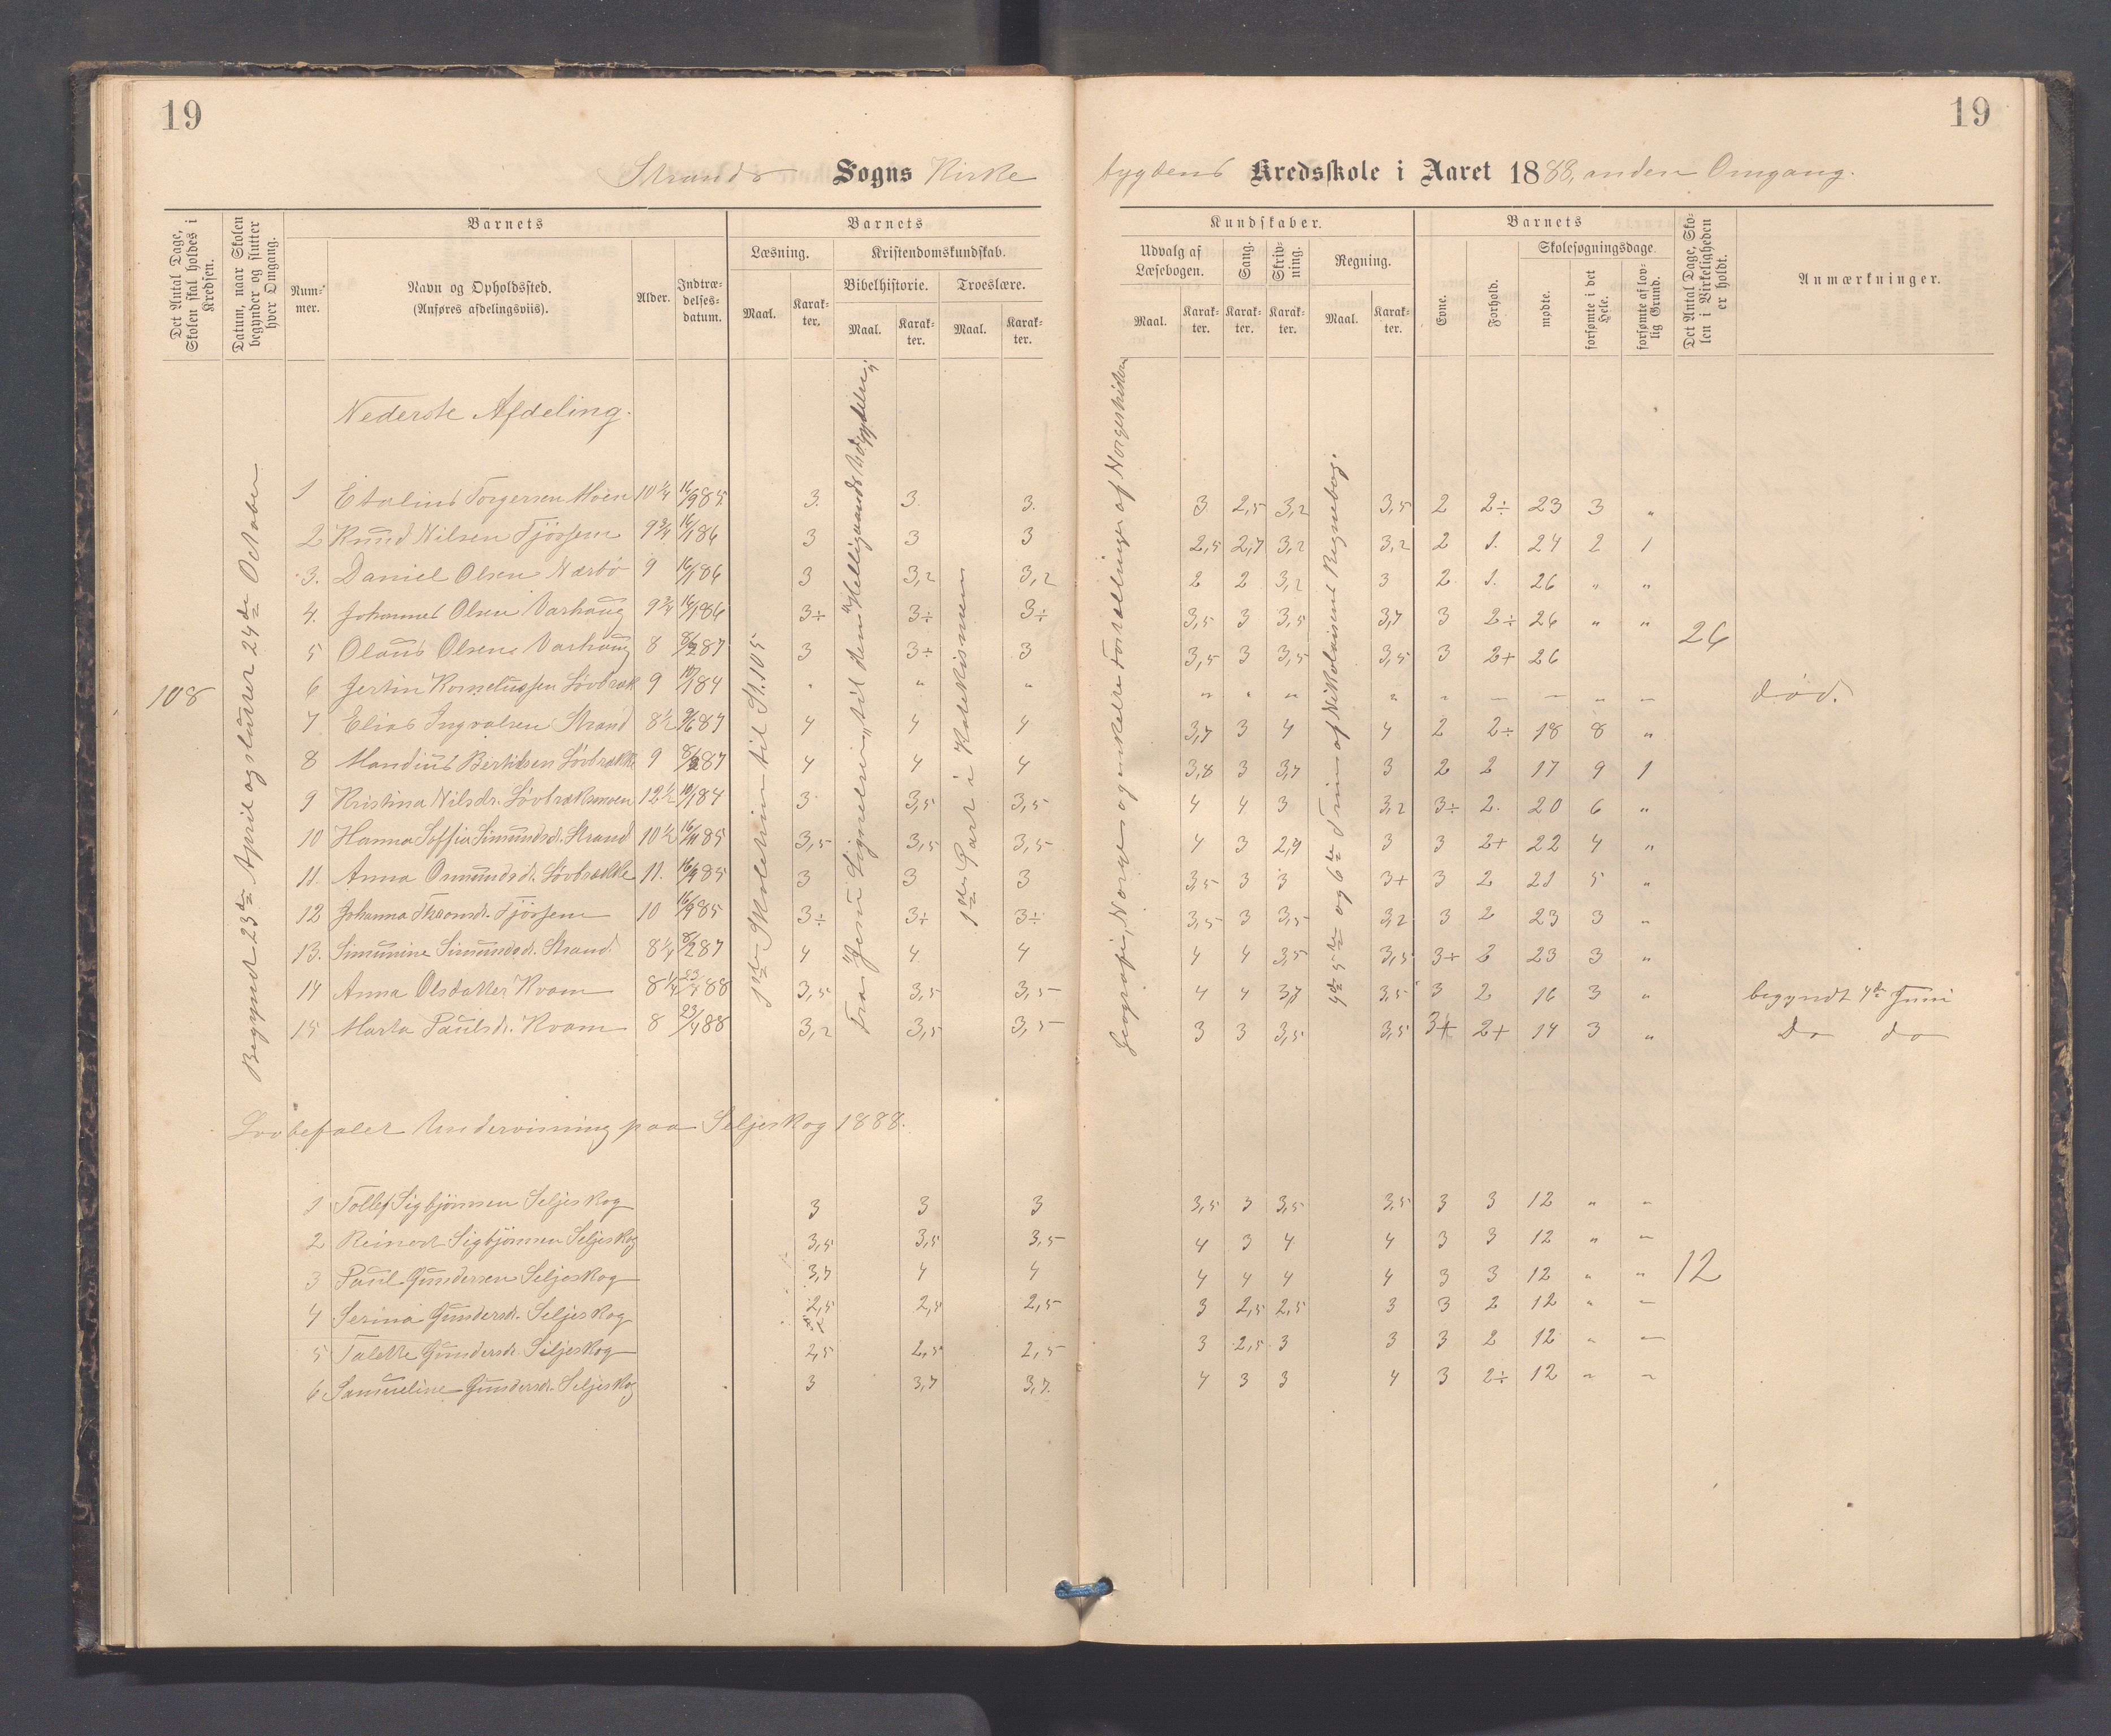 19
19
Strands Sogns Kirke
bygdens Kredsskole i Aaret 1888, anden Omgang.
Det Antal Dage, Skolen skal holdes i Kredsen.
Datum, naar Skolen begynder og slutter hver Omgang.
Barnets
Num-mer.
Navn og Opholdssted.
(Anføres afdelingsviis).
Alder.
Indtræ-delses-datum.
Barnets
Læsning.
Maal.
Karak-ter.
Kristendomskundskab.
Bibelhistorie.
Maal.
Karak-ter.
Troeslære.
Maal.
Karak-ter.
Kundskaber.
Udvalg af Læsebogen.
Maal.
Karak-ter.
Sang.
Karak-ter.
Skriv-ning.
Karak-ter.
Regning.
Maal.
Karak-ter.
Barnets
Evne.
Forhold.
Skolesøgningsdage.
mødte.
forsømte i det Hele.
forsømte af lov-lig Grund.
Det Antal Dage, Sko-len i Virkeligheden er holdt.
Anmærkninger.
108
Begyndt 23de April og slutter 24de October
1ste Skoletrin til St. 105
Fra "Jesu Lignelser" til den "Helligaands Udgydelse"
1ste Part i Katekismen
Geografi, Norge og enkelte Fortællinger af Norgeshistorie
4de 5te og 6te Trin af Nikolaisens Regnebog.
Nederste Afdeling.
1 Etolius Torgersen Moen 10 1/4 16/9 85 3. 3. 3. 3 2,5 3,2 3,5 2 2÷ 23 3 "
2 Knud Nilsen Tjössem 9 3/4 16/1 86 3 3 3 2,5 2,7 3,2 3,2 2 1. 24 2 1
3. Daniel Olsen Nærbö 9 16/1 86 3 3,2 3,2 2 2 3,2 3 2 1. 26 " "
4. Johannes Olsen Varhaug 9 3/4 16/1 86 3÷ 3÷ 3÷ 3,5 3 3,5 3,7 3 2÷ 26 " "
5 Olaus Olsen Varhaug 8 8/2 87 3 3÷ 3 3,5 3 3,5 3,5 3 2+ 26
26
6 Jertin Korneliussen Lövbræk 9 10/1 84 " " " " " " " " — — " — död.
7 Elias Ingvalsen Strand 8 1/2 9/6 87 4 4 4 3,7 3 4 4 2 2÷ 18 8 "
8 Mandius Bertilsen Lövbrække 9 8/2 87 4 4 4 3,8 3 3,7 3 2 2 17 9 1
9 Kristina Nilsdr. Lövbrækmoen 12 1/2 10/1 84 3 3,5 3,5 4 4 3 3,2 3÷ 2. 20 6 "
10 Hanna Soffia Simundsd. Strand 10 1/2 16/11 85 3,5 3,5 3,5 4 3 2,9 3 3 2+ 22 4 "
11. Anna Osmundsdr. Lövbrække 11. 16/9 85 3 3 3 3,5 3 3 3+ 3 2 21 5 "
12 Johanna Thomsdr. Tjössem 10 16/9 85 3÷ 3÷ 3÷ 3,5 3 3,5 3,2 3 2 23 3 "
13. Simunine Simundsd. Strand. 8 1/4 8/2 87 4 4 4 4 4 3,5 3,5 3+ 2 23 3 "
14 Anna Olsdatter Kvam 8 1/4 23/4 88 3,5 3,5 3,5 4 4 3,7 3,5 3 2 16 3 " begyndt 4de Juni
15 Marta Paulsdr. Kvam 8 23/4 88 3,2 3,5 3,5 3 3 3,5 3,5 3+ 2+ 14 3 " Do do
Lovbefalet Undervisning paa Seljeskog 1888.
1 Tollef Sigbjörnsen Seljeskog 3 3 3 3,5 3 3,5 3,5 3 3 12 " "
2 Reinert Sigbjörnsen Seljeskog 3,5 3,5 3,5 4 3 4 4 3 3 12 " "
3 Paul Gundersen Seljeskog 3,7 4 4 4 4 4 4 3 3 12 " " 12
4 Serina Gundersd. Seljeskog 2,5 2,5 2,5 3 2,5 2,5 3 3 2 12 " "
5 Talette Gundersd. Seljeskog 2,5 2,5 2,5 3 2,5 3 3 3 2 12 " "
6 Samueline Gundersd. Seljeskog 3 3,7 3,7. 4 3 3 4 3 2÷ 12 " "